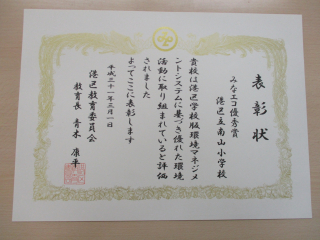 表彰状
みなとエコ優秀賞
港区立南山小学校
貴校は港区学校版環境マネジメ
ントシステムに基づき優れた環境
活動に取り組まれていると評価
されました
よってここに表彰します
平成三十一年三月一日
港区教育委員会
教育長 青木 康平